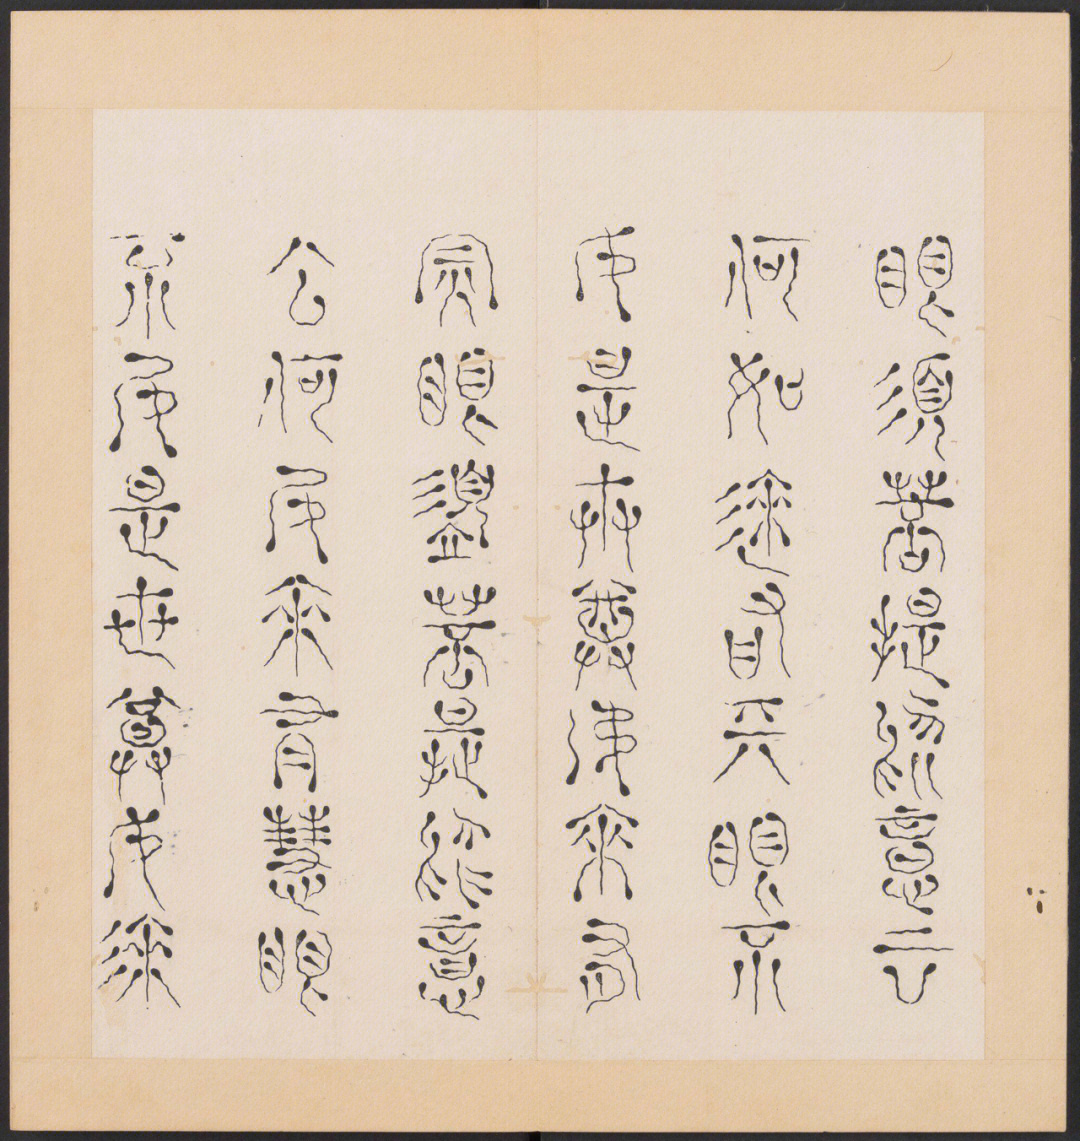 眼須菩提於意云
何如來有天眼不
如是世尊如來有
天眼須菩提於意
云何如來有慧眼
不如是世尊如來